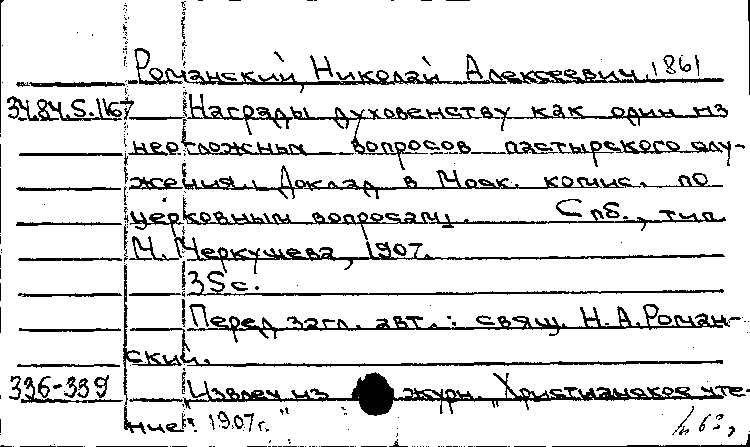 Романский, Николай Алексеевич, 1861
34.84.5.1167 Награды духовенству как один из
неотложных вопросов пастырского слу-
жения. [Доклад в Моск. комис. по
церковным вопросам]. Спб., тип.
М. Меркушева, 1907.
35 с.
Перед загл. авт.: свящ. Н. А. Роман-
ский.
336-339 Извлеч из журн. "Христианское чте-
ние". 1907 г."